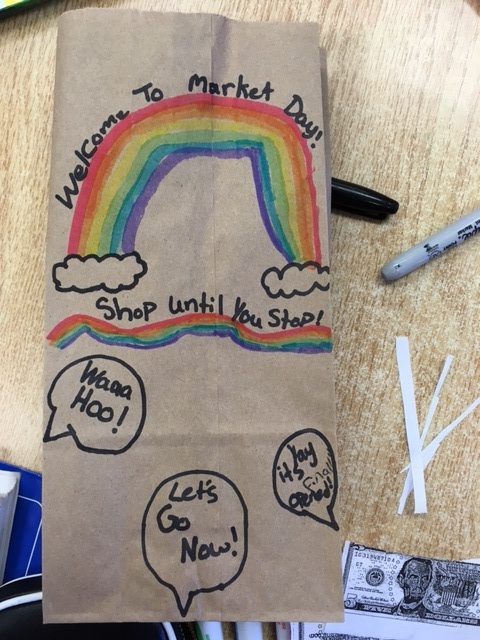 Welcome To Market Day!
Shop until You Stop!
Waaa
HOO!
Yay
it's
Finally
opened!
Let's
Go
Now!
FIVE